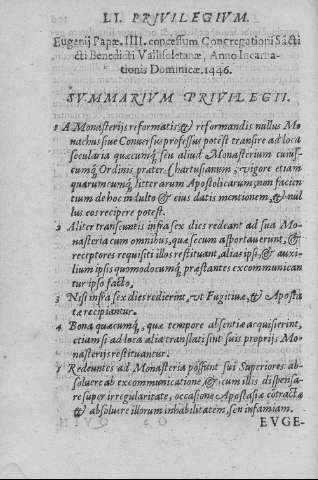 LI. PRIVILEGIVM.
Eugenij Papæ. IIII. concessum Congregationi Sācti
cti Benedicti Vallisoletanæ, Anno Incarna-
tionis Dominicæ. 1446.
SVMMARIVM PRIVILEGII.
1 A Monasterijs reformatis, & reformandis nullus Mo-
nachus siue Conuersus professus potest transire ad loca
secularia quæcumq̃, seu aliud Monasterium cuius-
cumq̃ Ordinis, præter Chartusianum; vigore etiam
quarumcumq̃ litterarum Apostolicarum, non facien-
tium de hoc indulto & eius datis mentionem, & nul-
lus eos recipere potest.
2 Aliter transeuntis infra sex dies redeant ad sua Mo-
nasteria cum omnibus, quæ secum asportauerunt, &
receptores requisiti illos restituant, alias ipsi, & auxi-
lium ipsis quomodocumq̃, præstantes excommunican
tur ipso facto,
3 Nisi infra sex dies redierint, vt Fugitiuæ, & Aposta
tæ recipiantur.
4 Bona quæcumq̃, quæ tempore absentiæ acquisierint,
etiam si ad loca alia translati sint suis proprijs Mo-
nasterijs restituantur.
5 Redeuntes ad Monasteria possunt sui Superiores ab-
soluere ab excommunicatione, & cum illis dispensa-
re super irregularitate, occasione Apostasiæ cōtracta
& absoluere illorum inhabilitatem, seu infamiam.
EVGE-